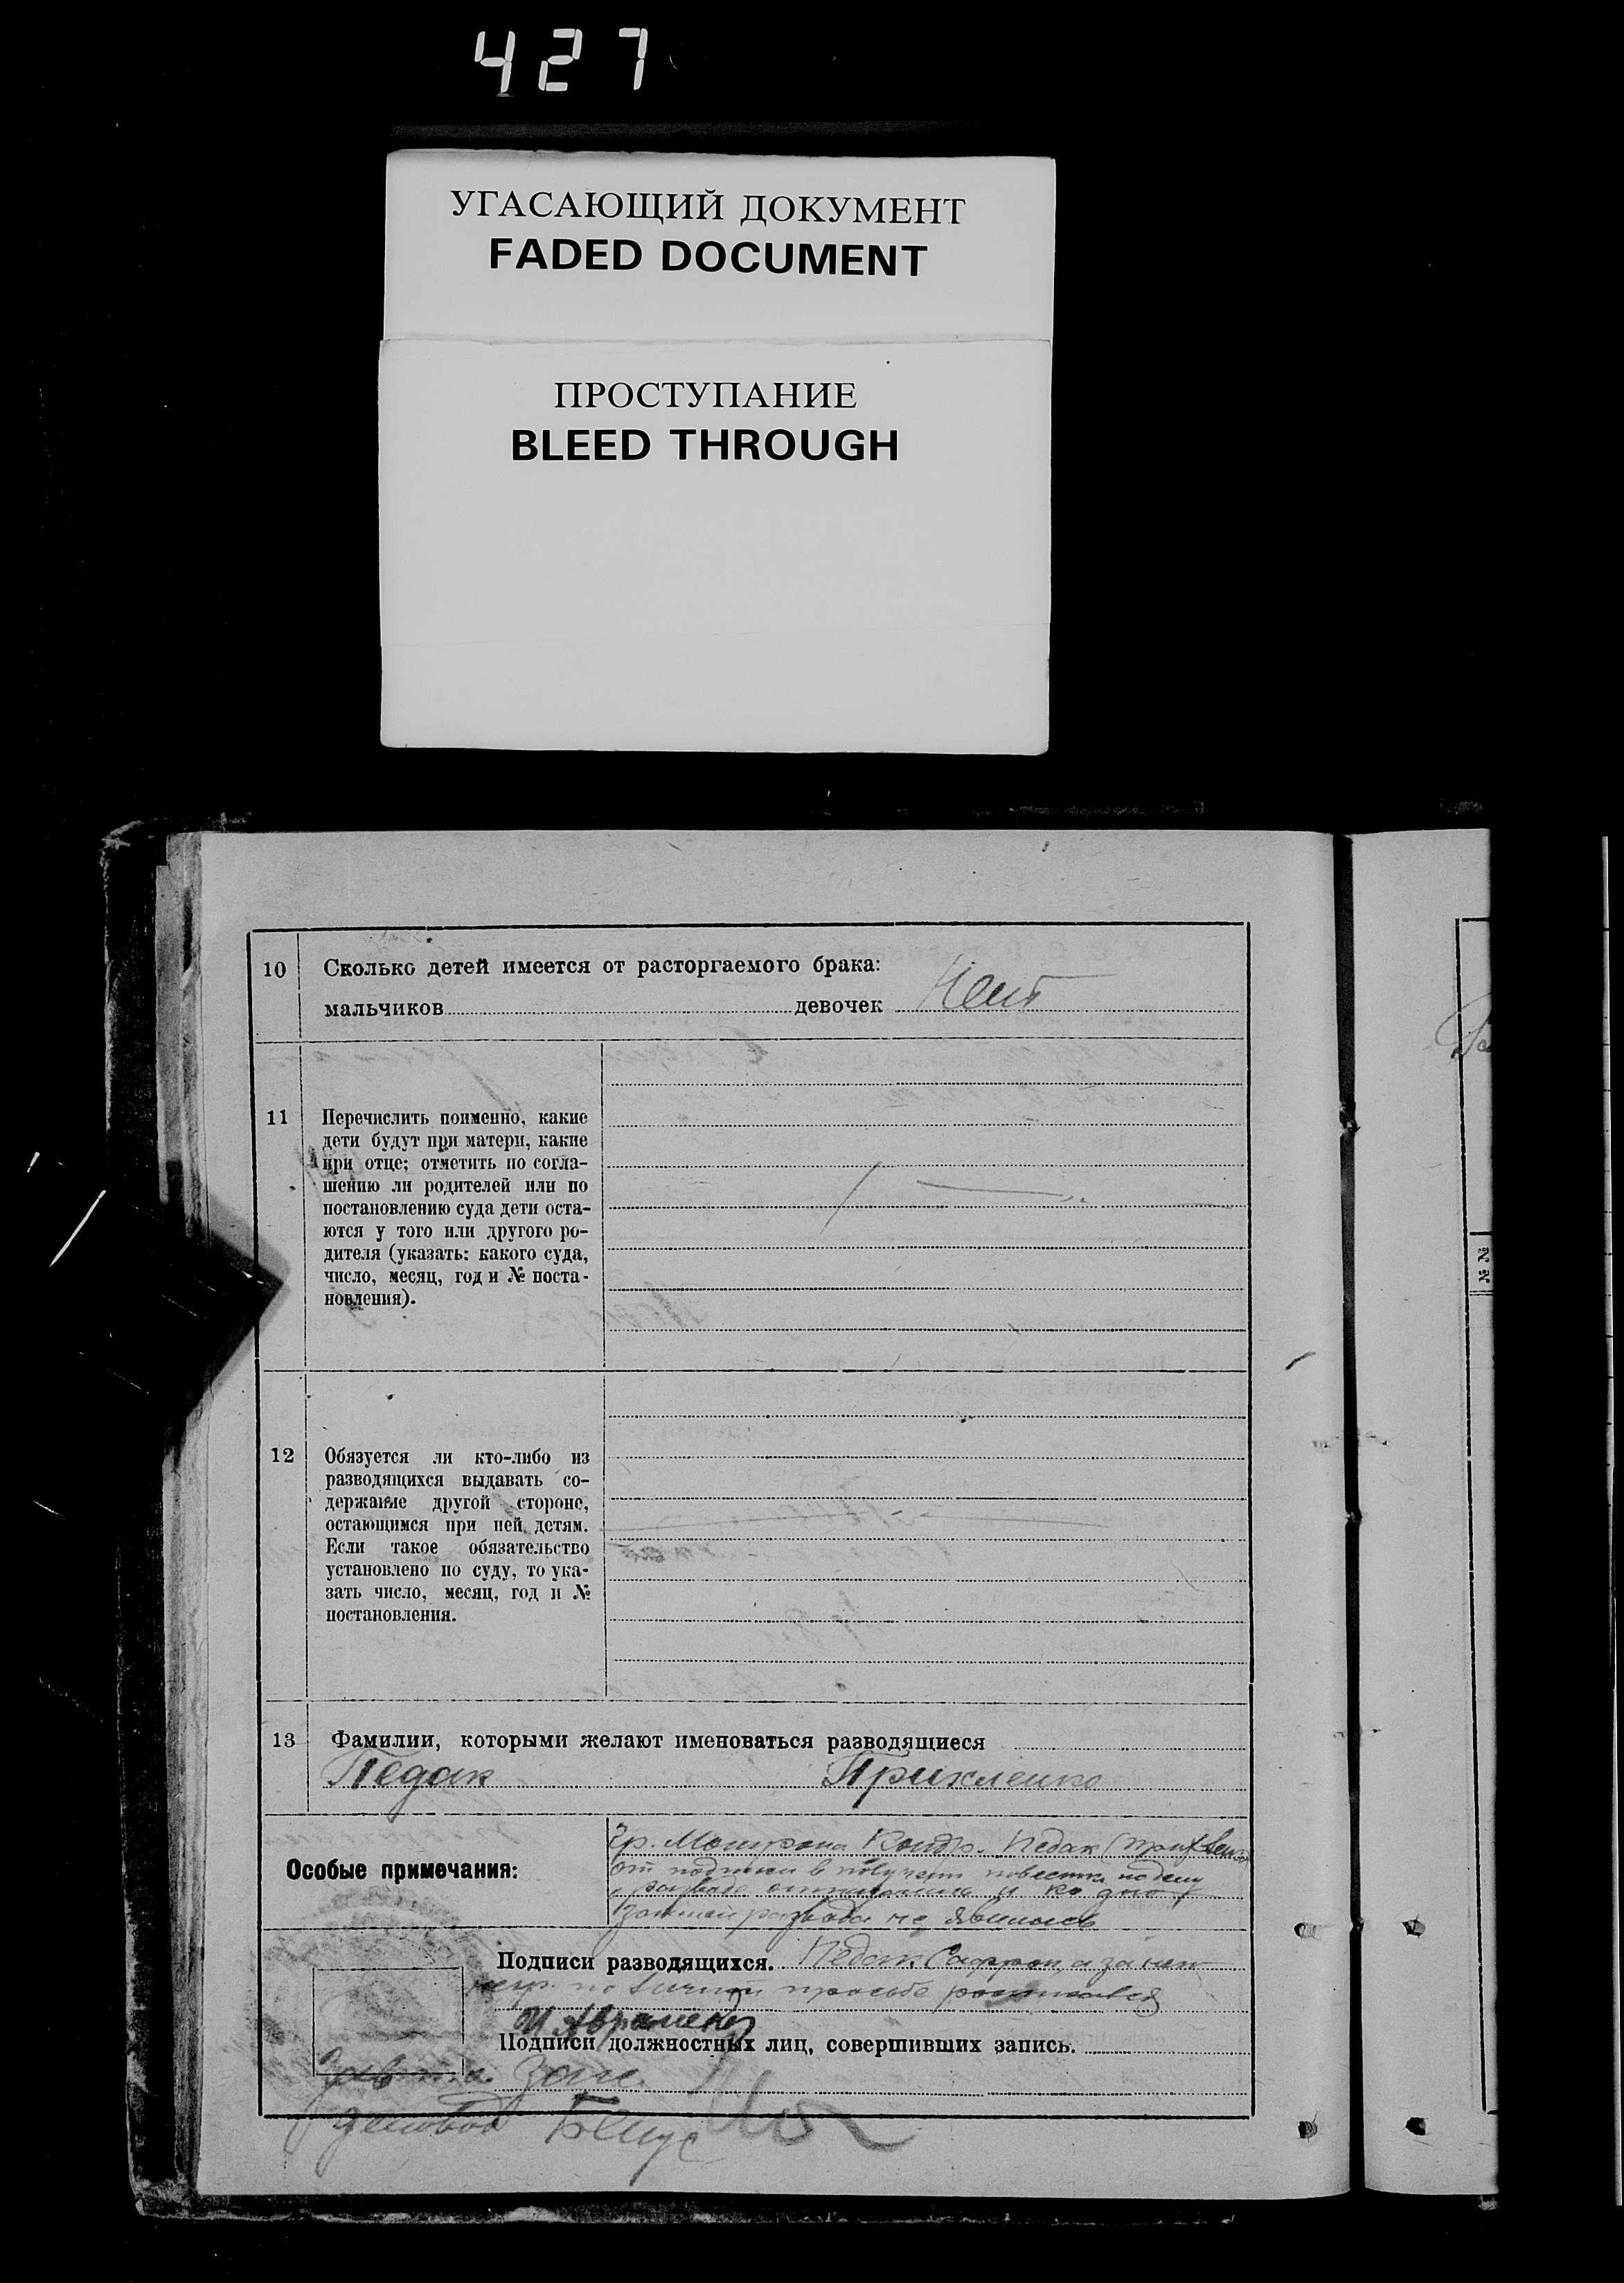 427
УГАСАЮЩИЙ ДОКУМЕНТ
FADED DOCUMENT
ПРОСТУПАНИЕ
BLEED THROUGH
10 Сколько детей имеется от расторгаемого брака:
мальчиков девочек Нет
11 Перечислить поименно, какие
дети будут при матери, какие
при отце; отметить по согла-
шению ли родителей или по
постановлению суда дети оста-
ются у того или другого ро-
дителя (указать: какого суда,
число, месяц, год и № поста-
новления).
12 Обязуется ли кто-либо из
разводящихся выдавать со-
держание другой стороне,
остающимся при ней детям.
Если такое обязательство
установлено по суду, то ука-
зать число, месяц, год и №
постановления.
13 Фамилии, которыми желают именоваться разводящиеся
Педак Прихленко
Особые примечания:
Гр. Кондр. Педак
от в повестки
развода и ко дню
развода не явилась
Подписи разводящихся. Педак а за
негр. по личной просьбе
И Авраменко
Подписи должностных лиц, совершивших запись.
Зав
деловод
№ №